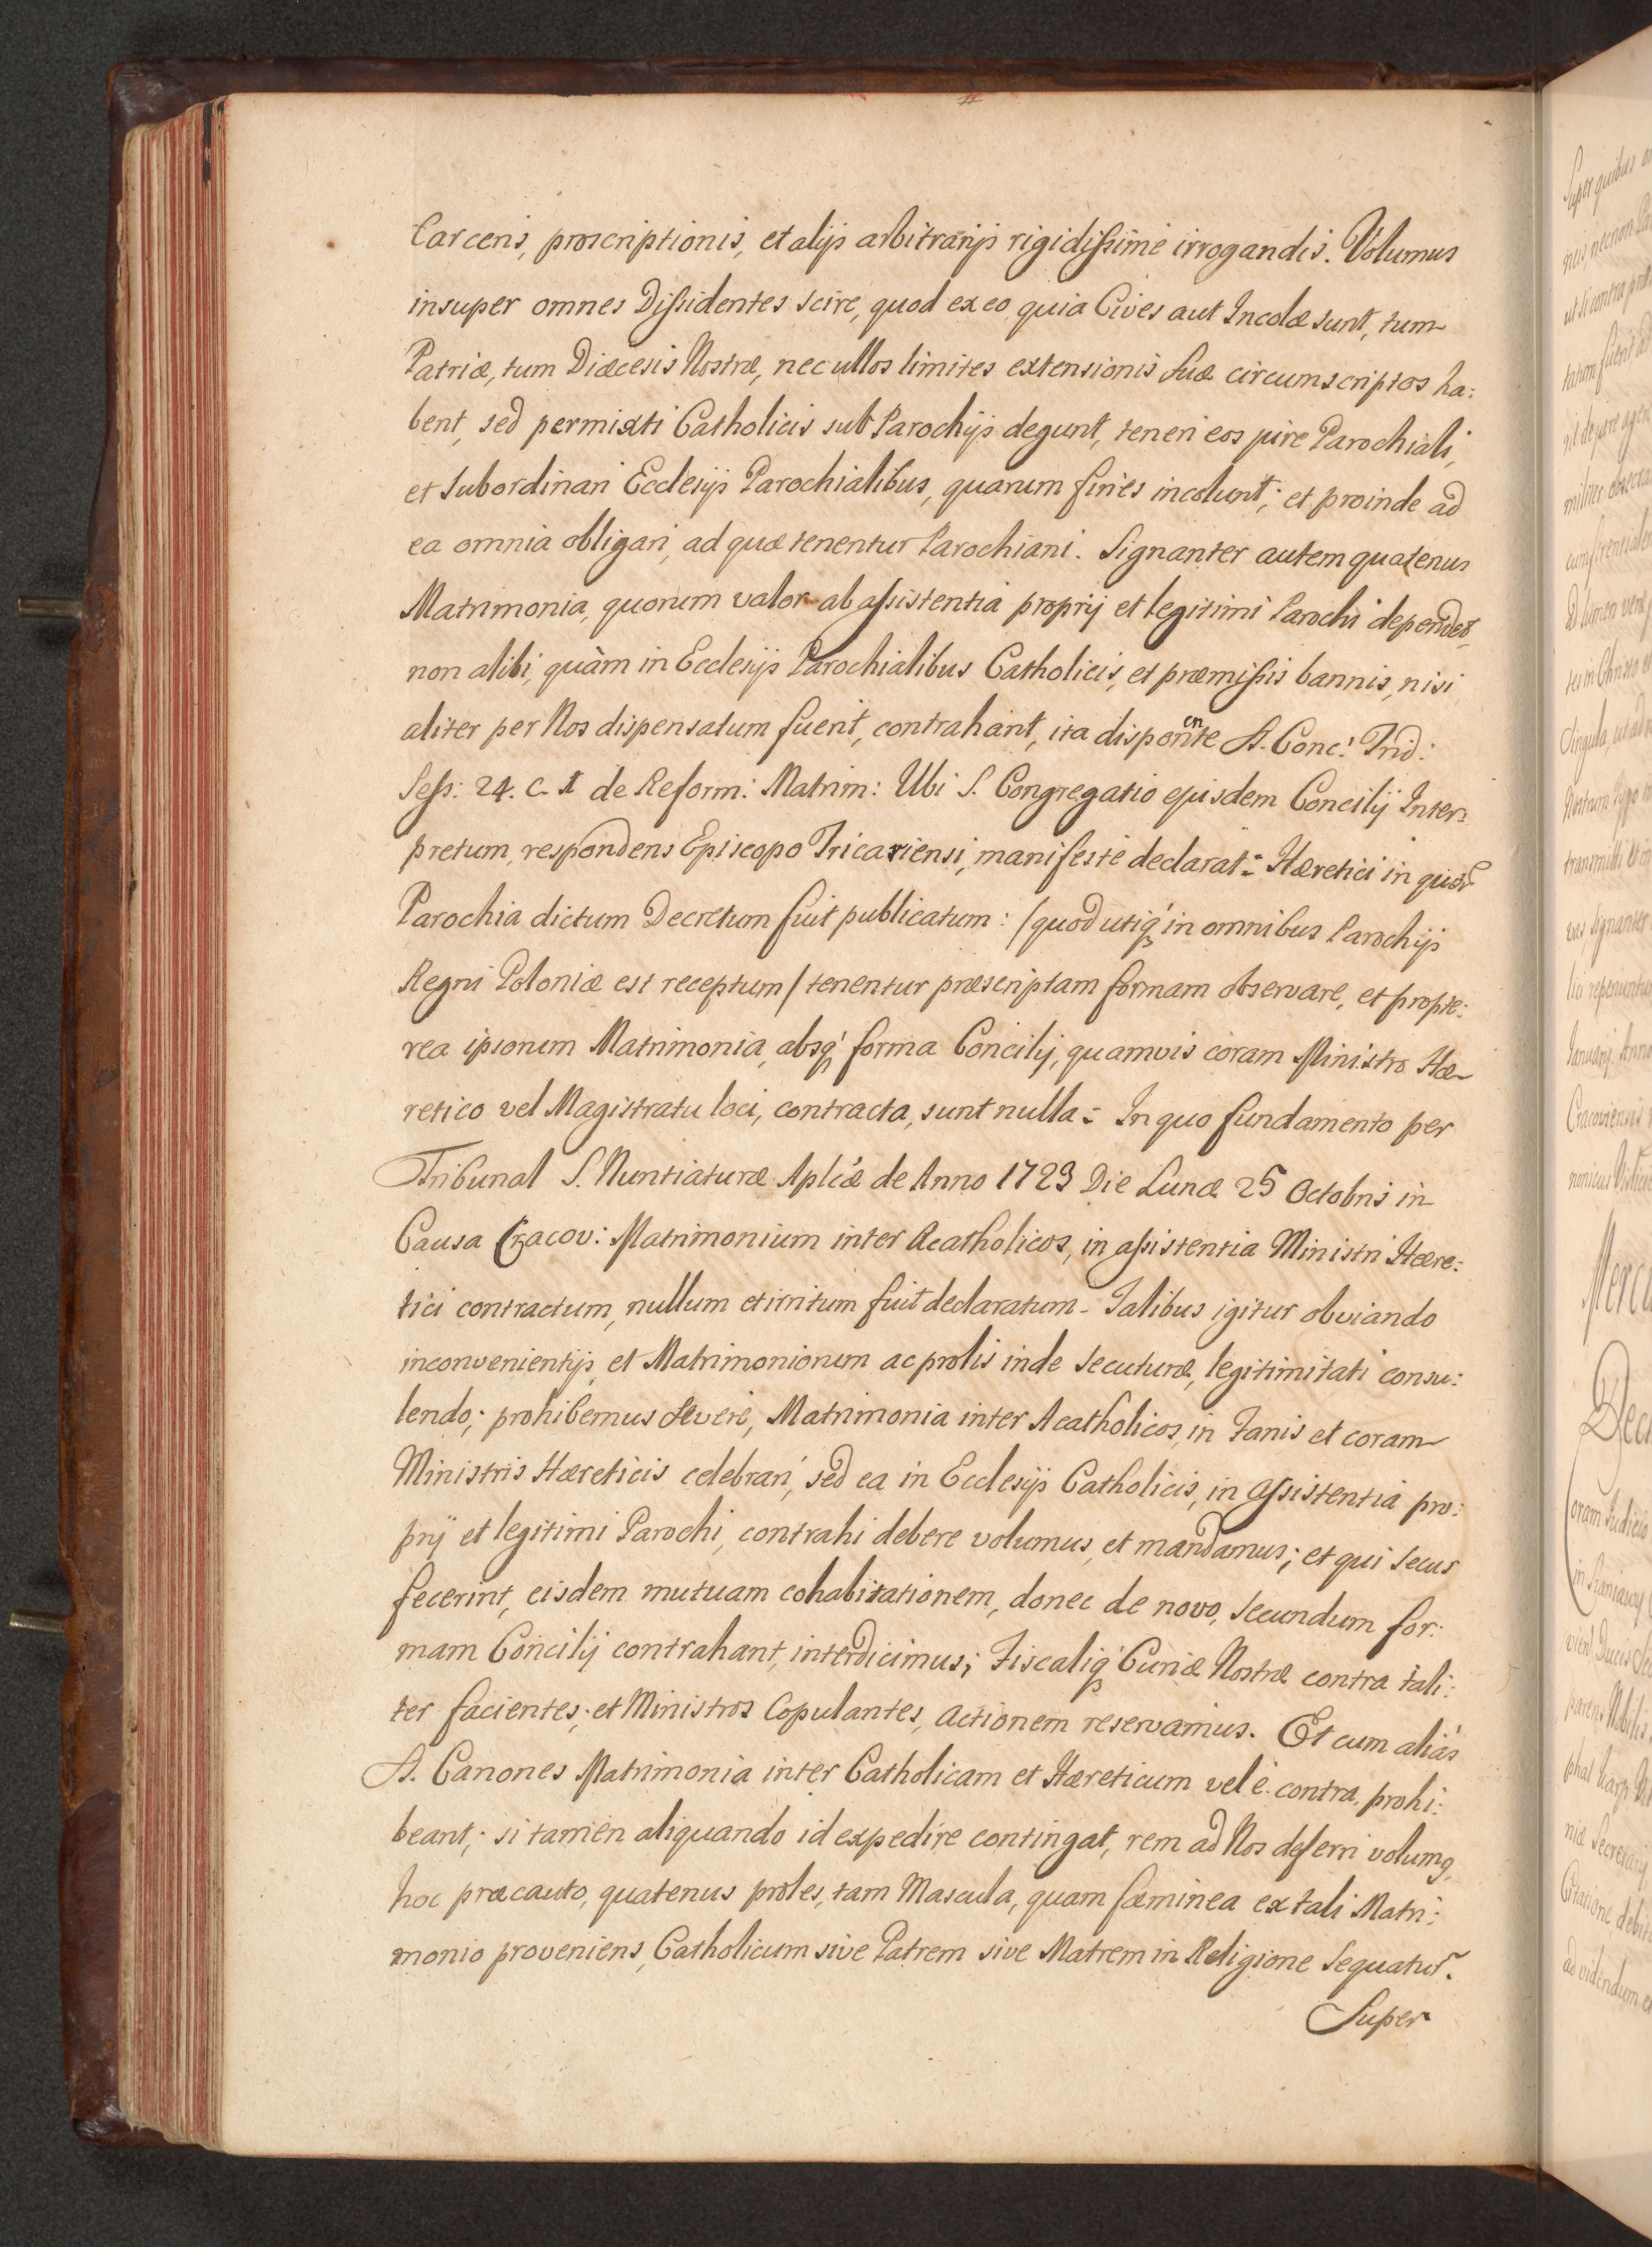 Carceris, proscriptionis, et alijs arbitrarijs rigidissime irrogandis. Volumus
insuper omnes Dissidentes scire, quod ex eo, quia Cives aut Incolæ sunt, tum
Patriæ, tum Diæcesis Nostræ, nec ullos limites extensionis suæ circumscriptos ha:
bent, sed permixti Catholicis sub Parochijs degunt, teneri eos jure Parochiali,
et subordinari Ecclesijs Parochialibus, quarum fines incolunt; et proinde ad
ea omnia obligari, ad quæ tenentur Parochiani. Signanter autem quatenus
Matrimonia, quorum valor ab assistentia proprij et legitimi Parochi dependet,
non alibi, quàm in Ecclesijs Parochialibus Catholicis, et præmissis bannis, nisi
aliter per Nos dispensatum fuerit, contrahant, ita disponente S. Conc: Trid:
Sess: 24. C. 1 de Reform: Matrim: Ubi S. Congregatio ejusdem Concilij Inter:
pretum, respondens Episcopo Tricariensi, manifeste declarat: Hæretici in quor
Parochia dictum Decretum fuit publicatum: /quod utiq; in omnibus Parochijs
Regni Poloniæ est receptum/ tenentur præscriptam formam observare, et propte:
rea ipsorum Matrimonia, absq; forma Concilij, quamvis coram Ministro Hæ
retico vel Magistratu loci, contracta, sunt nulla: In quo fundamento per
Tribunal S. Nuntiaturæ Aplicæ de Anno 1723 Die Lunæ 25 Octobris in
Causa Cracov: Matrimonium inter Acatholicos, in assistentia Ministri Hære:
tici contractum, nullum et irritum fuit declaratum. Talibus igitur obviando
inconvenientijs, et Matrimoniorum ac prolis inde secuturæ, legitimitati consu:
lendo; prohibemus severè, Matrimonia inter Acatholicos, in Fanis et coram
Ministris Hæreticis celebrari, sed ea in Ecclesijs Catholicis, in assistentia pro:
prij et legitimi Parochi, contrahi debere volumus, et mandamus; et qui secus
fecerint, eisdem mutuam cohabitationem, donec de novo, secundum for:
mam Concilij contrahant, interdicimus; Fiscaliq; Curiæ Nostræ contra tali:
ter facientes; et Ministros Copulantes, Actionem reservamus. Et cum aliàs
S. Canones Matrimonia inter Catholicam et Hæreticum vel è contra, prohi:
beant; si tamen aliquando id expedire contingat, rem ad Nos deferri volumq,
hoc præcauto, quatenus proles, tam Mascula, quam fæminea ex tali Matri:
monio proveniens, Catholicum sive Patrem sive Matrem in Religione Sequatur.
Super